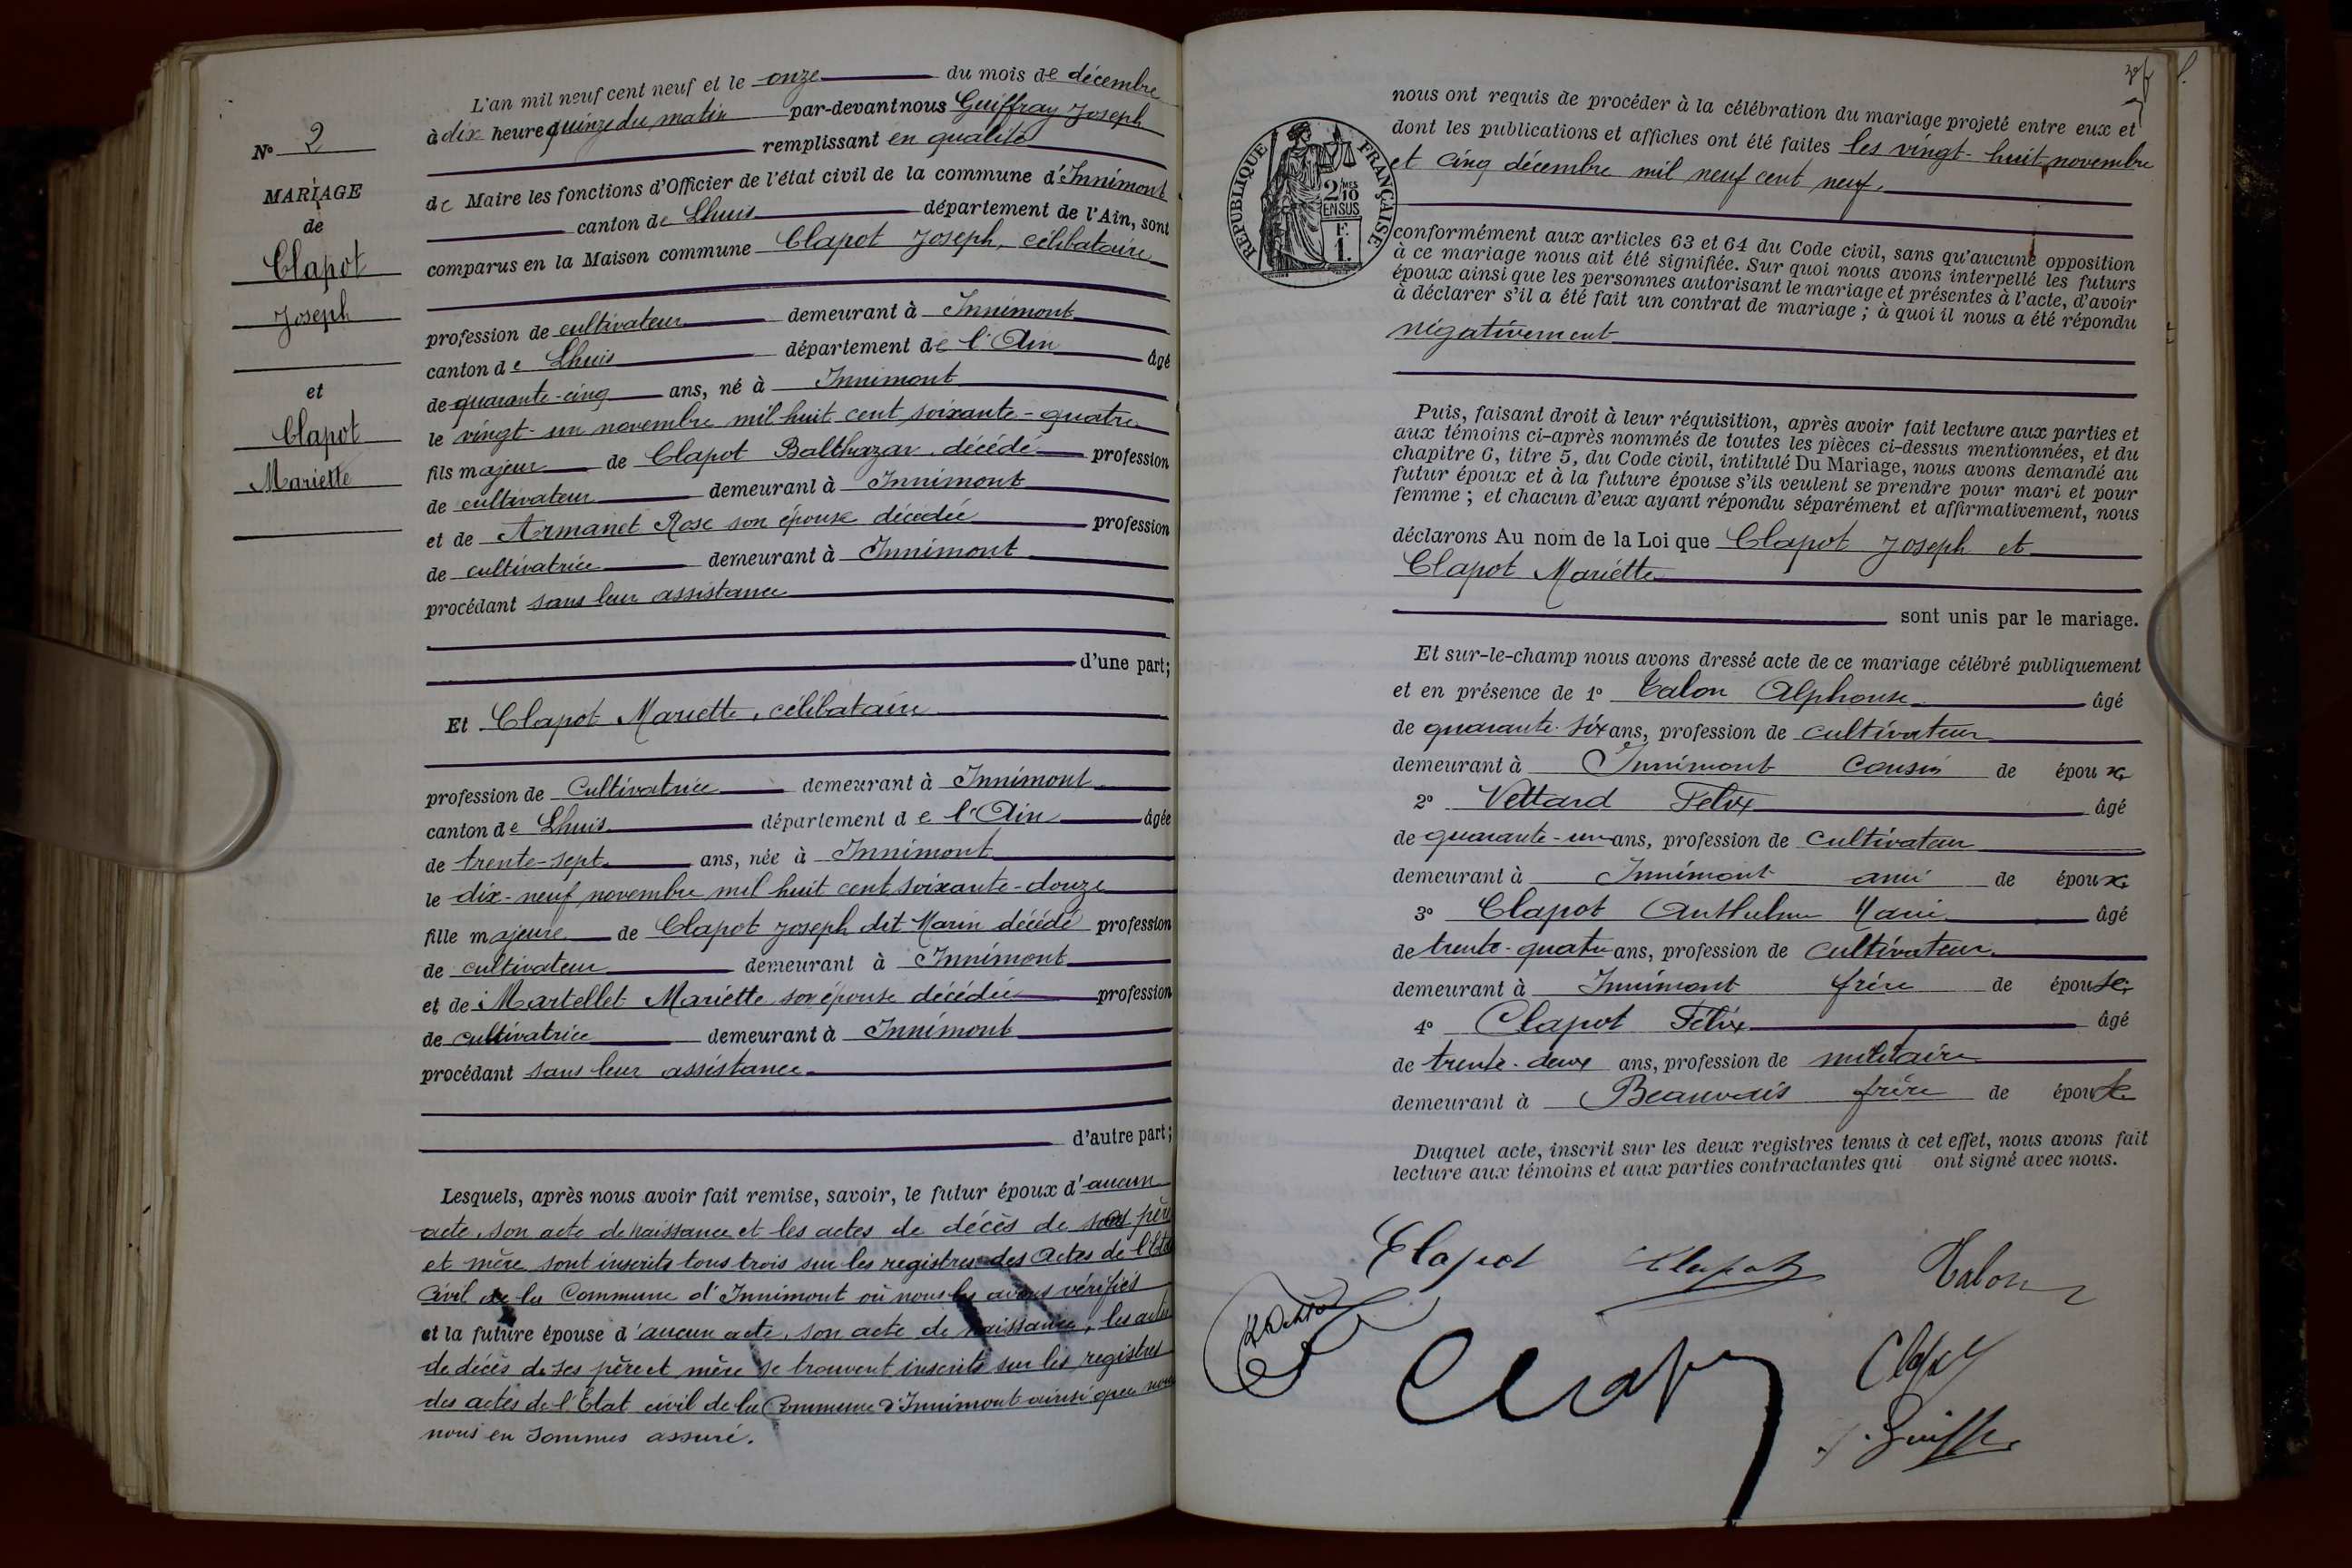 L'an mil neuf cent neuf et le onze du mois de décembre
à dix heure quinze du matin par-devant nous Guiffray Joseph
remplissant en qualité
de Maire les fonctions d'Officier de l'état civil de la commune d'Innimont
canton de Lhuis département de l'Ain, sont
comparus en la Maison commune Clapot Joseph, célibataire
profession de cultivateur demeurant à Innimont
canton de Lhuis département de l'Ain âgé
de quarante-cinq ans, né à Innimont
le vingt-un novembre mil huit cent soixante-quatre
fils majeur de Clapot Balthazar décédé profession
de cultivateur demeurant à Innimont
et de Armanet Rose son épouse décédée profession
de cultivatrice demeurant à Innimont
procédant sans leur assistance
d'une part;
Et Clapot Mariette, célibataire
profession de Cultivatrice demeurant à Innimont
canton de Lhuis département de l'Ain âgée
de trente-sept ans, née à Innimont
le dix-neuf novembre mil huit cent soixante-douze
fille majeure de Clapot Joseph dit Marin décédé profession
de cultivateur demeurant à Innimont
et de Martellet Mariette son épouse décédée profession
de cultivatrice demeurant à Innimont
procédant sans leur assistance
d'autre part;
Lesquels, après nous avoir fait remise, savoir, le futur époux d'aucun
acte, son acte de naissance et les actes de décès de père
et mère sont inscrits tous trois sur les registres des Actes de l'Etat
Civil de la Commune d'Innimont où nous les avons vérifiés
et la future épouse d'aucun acte, son acte de naissance, les actes
de décès de ses père et mère se trouvent inscrits sur les registres
des actes de l'Etat civil de la Commune d'Innimont ainsi que nous
nous en sommes assuré.
N° 2
MARIAGE
de
Clapot
Joseph
et
Clapot
Mariette
nous ont requis de procéder à la célébration du mariage projeté entre eux et
dont les publications et affiches ont été faites les vingt-huit novembre
et cinq décembre mil neuf cent neuf.
RÉPUBLIQUE FRANÇAISE
2/10 MES
EN SUS
F.
1.
conformément aux articles 63 et 64 du Code civil, sans qu'aucune opposition
à ce mariage nous ait été signifiée. Sur quoi nous avons interpellé les futurs
époux ainsi que les personnes autorisant le mariage et présentes à l'acte, d'avoir
à déclarer s'il a été fait un contrat de mariage; à quoi il nous a été répondu
négativement
Puis, faisant droit à leur réquisition, après avoir fait lecture aux parties et
aux témoins ci-après nommés de toutes les pièces ci-dessus mentionnées, et du
chapitre 6, titre 5, du Code civil, intitulé Du Mariage, nous avons demandé au
futur époux et à la future épouse s'ils veulent se prendre pour mari et pour
femme; et chacun d'eux ayant répondu séparément et affirmativement, nous
déclarons Au nom de la Loi que Clapot Joseph et
Clapot Mariette
sont unis par le mariage.
Et sur-le-champ nous avons dressé acte de ce mariage célébré publiquement
et en présence de 1° Talon Alphonse âgé
de quarante-six ans, profession de cultivateur
demeurant à Innimont cousin de époux
2° Vettard Félix âgé
de quarante-un ans, profession de cultivateur
demeurant à Innimont ami de époux
3° Clapot Anthelme Marie âgé
de trente-quatre ans, profession de cultivateur
demeurant à Innimont frère de épouse
4° Clapot Félix âgé
de trente-deux ans, profession de militaire
demeurant à Beauvais frère de épouse
Duquel acte, inscrit sur les deux registres tenus à cet effet, nous avons fait
lecture aux témoins et aux parties contractantes qui ont signé avec nous.
Clapot Clapot Talon